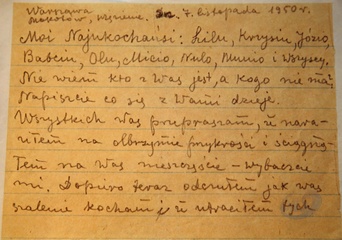 Warszawa
Mokotów, więzienie. Dn. 7. listopada 1950 r.
Moi Najukochańsi: Lilu, Krzysiu, Józio,
Babciu, Olu, Micio, Nulo, Muuo i Wszyscy.
Nie wiem kto z Was jest, a kogo nie ma,
Napiszcie co się z Wami dzieje.
Wszystkich Was przepraszam, że nara-
ziłem na olbrzymie przykrości i ściągną-
łem na Was nieszczęście – wybaczcie
mi. Dopiero teraz odczułem jak was
szalenie kocham i że utraciłem tych